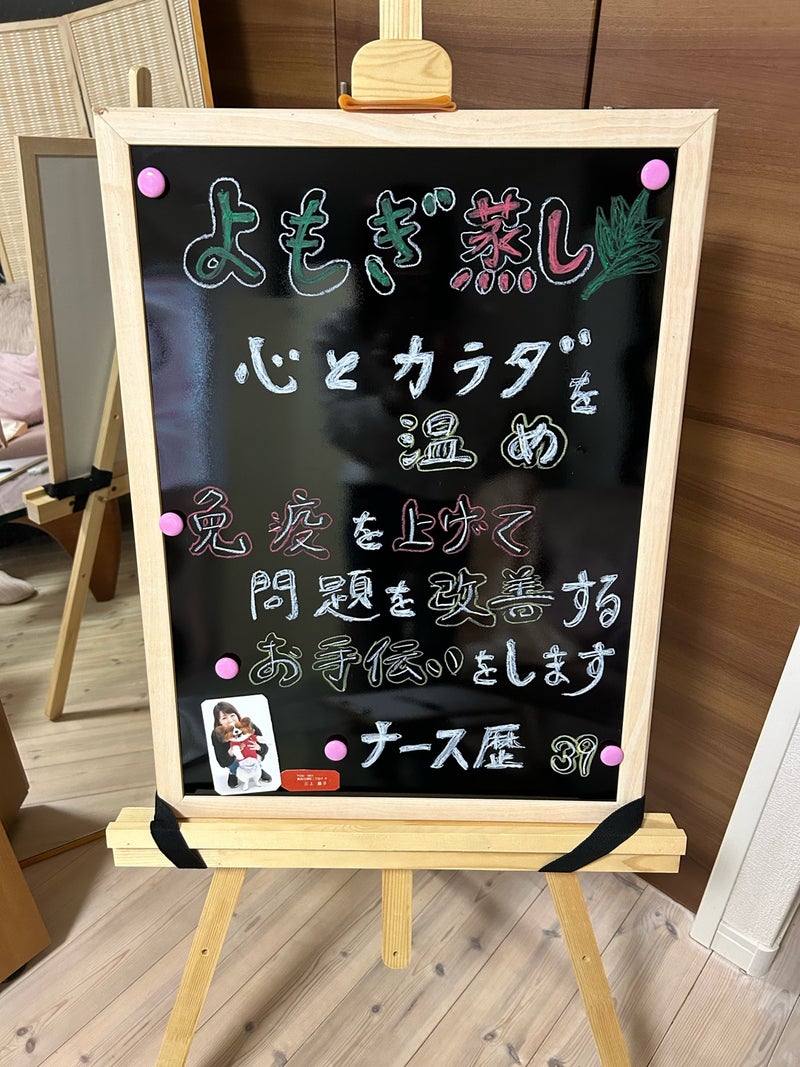 よもぎ蒸し
心とカラダを
温め
免疫を上げて
問題を改善する
お手伝いをします
ナース歴 39